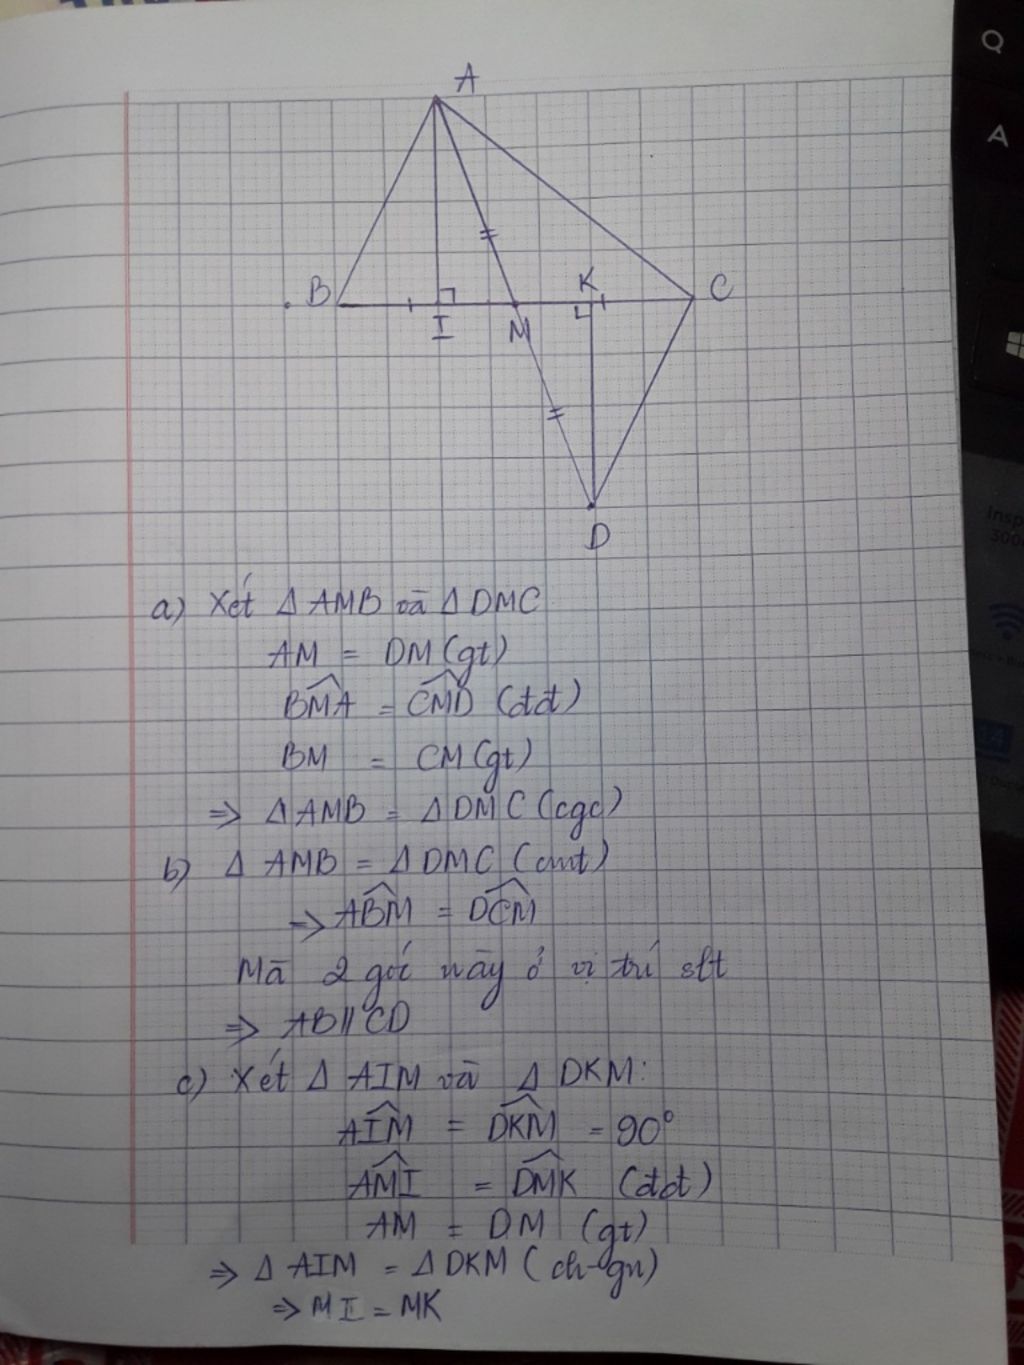 A
B
I
M
K
C
D
a) Xét Δ AMB và Δ DMC
AM = DM (gt)
BMA = CMD (đđ)
BM = CM (gt)
⇒ Δ AMB = Δ DMC (cgc)
b) Δ AMB = Δ DMC (cmt)
⇒ ABM = DCM
Mà 2 góc này ở vị trí slt
⇒ AB // CD
c) Xét Δ AIM và Δ DKM:
AIM = DKM = 90°
AMI = DMK (đđ)
AM = DM (gt)
⇒ Δ AIM = Δ DKM (ch-gn)
⇒ MI = MK
Q
A
Insp